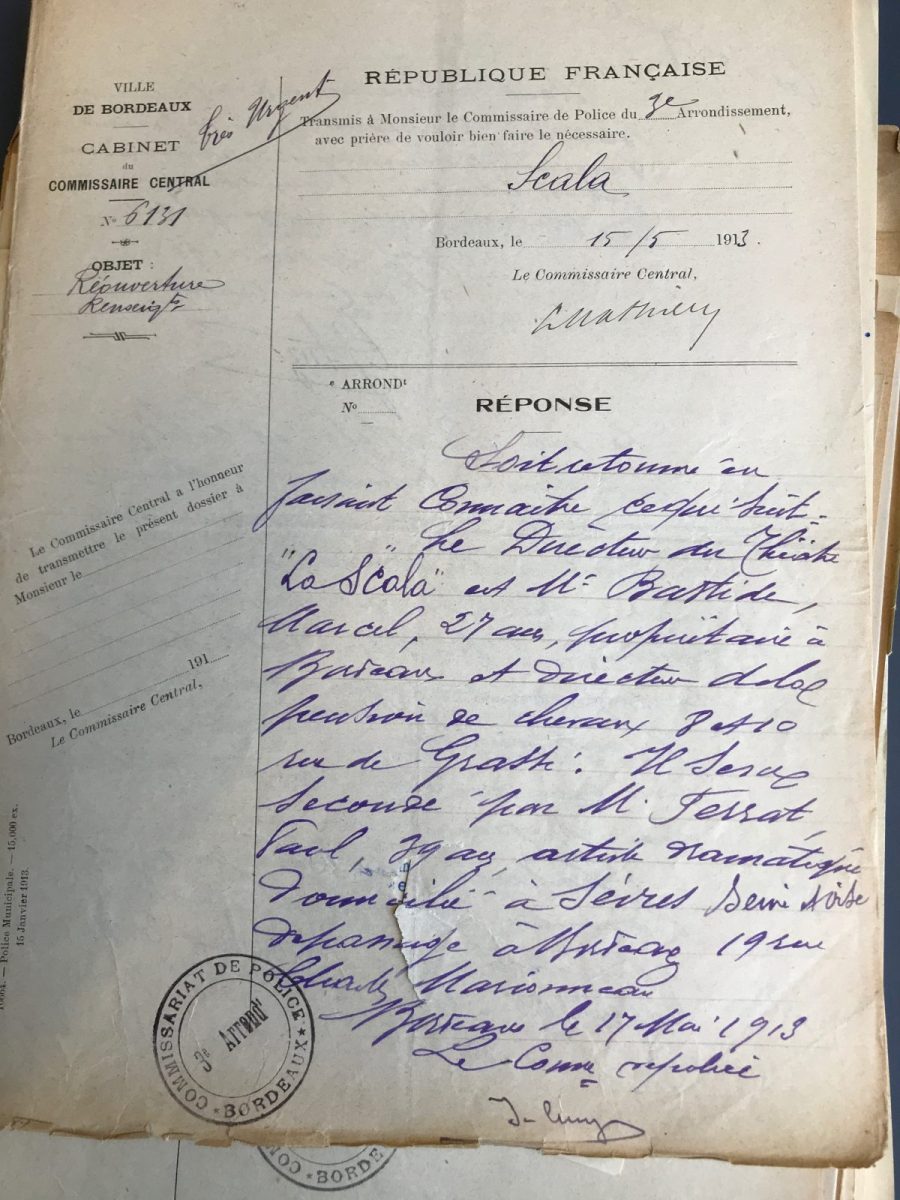 VILLE
DE BORDEAUX
CABINET
du
COMMISSAIRE CENTRAL
Très Urgent
No 6131
OBJET :
Réouverture
Renseigts
RÉPUBLIQUE FRANÇAISE
Transmis à Monsieur le Commissaire de Police du 3e Arrondissement,
avec prière de vouloir bien faire le nécessaire.
Scala
Bordeaux, le 15/5 1913.
Le Commissaire Central,
e ARRONDt
No
RÉPONSE
Soit retourné en
faisant connaître ce qui suit :
Le Directeur du Théâtre
"La Scala" est Mr Bastide,
Marcel, 27 ans, propriétaire à
Bordeaux et Directeur de la
pension de chevaux 8 et 10
rue de Grassi. Il sera
secondé par M. Ferrat,
Paul, 39 ans, artiste dramatique
domicilié à Sèvres Seine et Oise
de passage à Bordeaux 19 rue
Charles Marionneau
Bordeaux le 17 Mai 1913
Le Comre de police
Le Commissaire Central a l'honneur
de transmettre le présent dossier à
Monsieur le
Bordeaux, le 191
Le Commissaire Central,
Police Municipale. — 15,000 ex.
15 Janvier 1913.
COMMISSARIAT DE POLICE
3e Arrondt
BORDEAUX